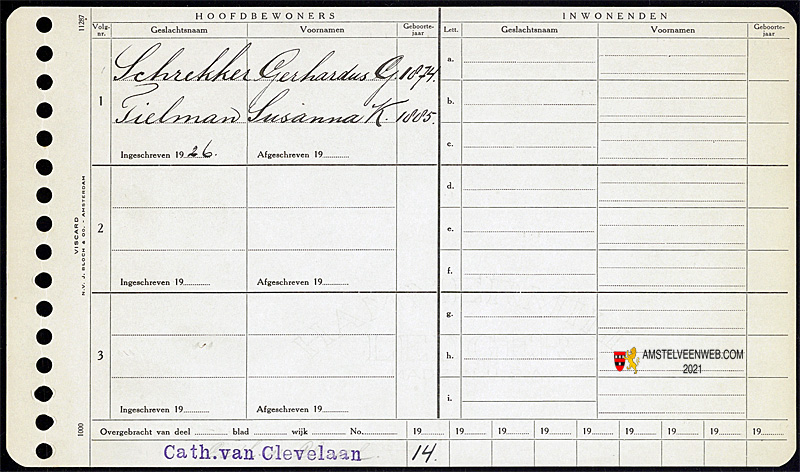 HOOFDBEWONERS
INWONENDEN
Volg-nr.
Geslachtsnaam
Voornamen
Geboorte-jaar
Lett.
Geslachtsnaam
Voornamen
Geboorte-jaar
1
Schrekker Gerhardus G. 1874.
Tielman Susanna K. 1885.
Ingeschreven 1926.
Afgeschreven 19
2
Ingeschreven 19
Afgeschreven 19
3
Ingeschreven 19
Afgeschreven 19
a.
b.
c.
d.
e.
f.
g.
h.
i.
AMSTELVEENWEB.COM
2021
Overgebracht van deel blad wijk No.
19 19 19 19 19 19 19 19 19
Cath.van Clevelaan
14.
11287
VISCARD
N.V. J. BLOCH & CO. - AMSTERDAM
1000